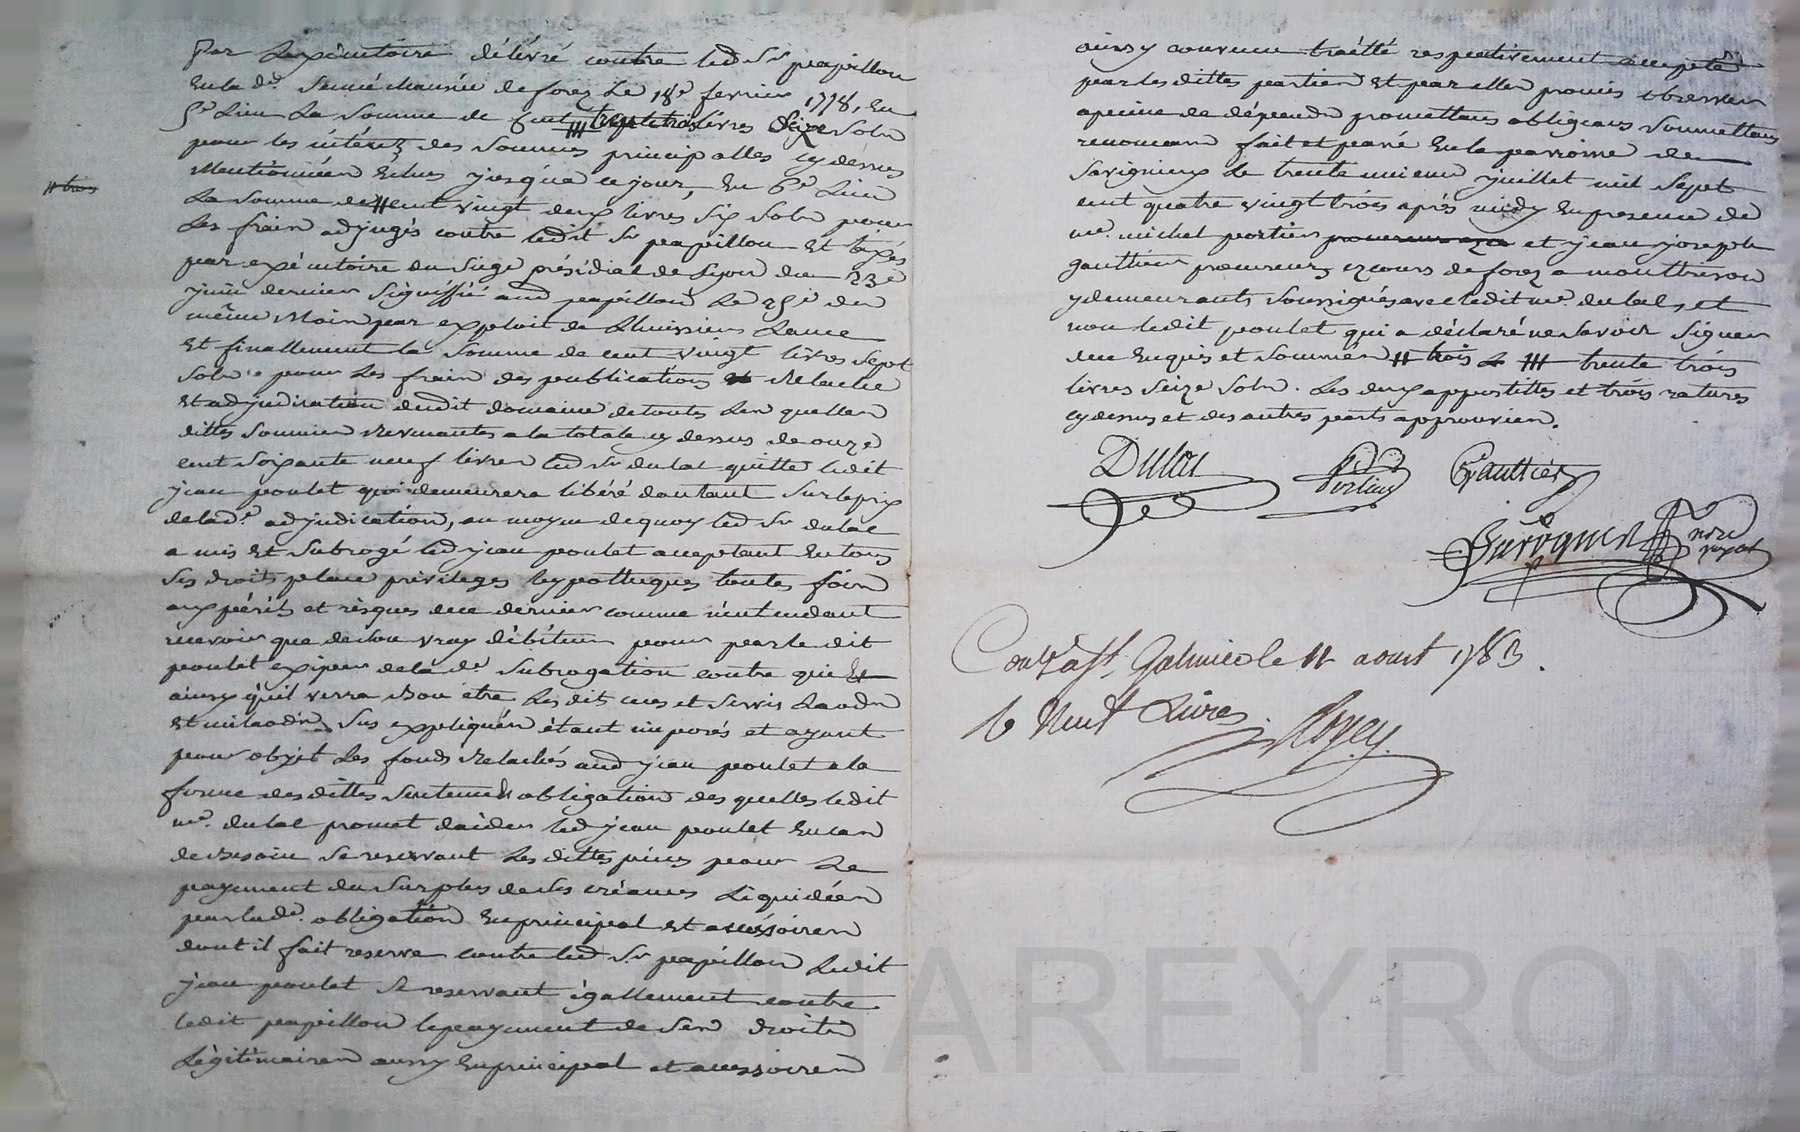 Par Lexécutoire délivré contre led Sr papillon
En la de. Sénéchaussée de forez Le 18e fevrier 1778, En
5e Lieu La Somme de Cent livres Seize Soln
pour les intérêz des Sommes principalles cy dessus
Mentionnéen Echus jusqu'a ce jour, En 6e Lieu
# trois
La Somme de # cent vingt deux livres Six Soln pour
Les frain adjugés contre ledit Sr papillon Et taxés
par exécutoire du Siege présidial de Lyon du 23e
juin dernier Signiffié aud papillon Le 25e du
même Moin par exploit de Lhuissier Lance
Et finallement la Somme de cent vingt livres Sept
Soln pour Les frain des publications Relache
Et adjudication dudit domaine de toutes Len quellen
dittes Sommen Revenantes a la totale cy dessus de onze
cent Soixante neuf livren led Sr dulac quitte ledit
jean poulet qui demeurera libéré dautant Sur le prix
de lad.e adjudication, au moyen de quoy led Sr dulac
a mis Et Subrogé led jean poulet acceptant En tous
Ses droits place privileges hypotheques toutes foin
aux périls et risques de ce dernier comme n'entendant
recevoir que de Son vray débiteur pour par le dit
poulet exiper de la de Subrogation contre qui Et
ainsy qu'il verra Bon etre Les dits cens et Servis Laodn
Et milaodn Sus expliquén étant imposés et ayant
pour objet Les fonds Relachés aud jean poulet a la
forme des dittes Sentence Et obligation des quelles ledit
me. dulac promet daider led jean poulet En can
de Besoin Se reservant Les dittes pieces pour Le
payement du Surplus de Ses créances Liquidéen
par lade. obligation En principal Et accessoiren
dont il fait reserve contre led Sr papillon Ledit
jean poulet Se reservant également contre
ledit papillon le payement de Sen droitn
Légitimairen aussy En principal et accessoiren
ainsy convenu traitté respectivement accepté
par les dittes partien Et par ellen promis observer
a peine de dépendn promettans obligeans Soumettans
renonceans fait et passé En la parroisse de
Savignieux Le trente unieme juillet mil Sept
cent quatre vingt trois après midy En presence de
me. michel portier procureur et jean joseph
gaultier procureurs ez cours de forez a montbrison
y demeurants Soussignés avec ledit me. dulac, et
non ledit poulet qui a déclaré ne Savoir Signer
de ce Enquis et Sommén # trois # trente trois
livres Seize Soln. Les deux appostilles et trois ratures
cy dessus et des autres parts approuvéen.
Dulac Portier Gaultier
nore royal
Conlé a St. Galmier le 11 aoust 1783.
Huit Livres.
CHAREYRON